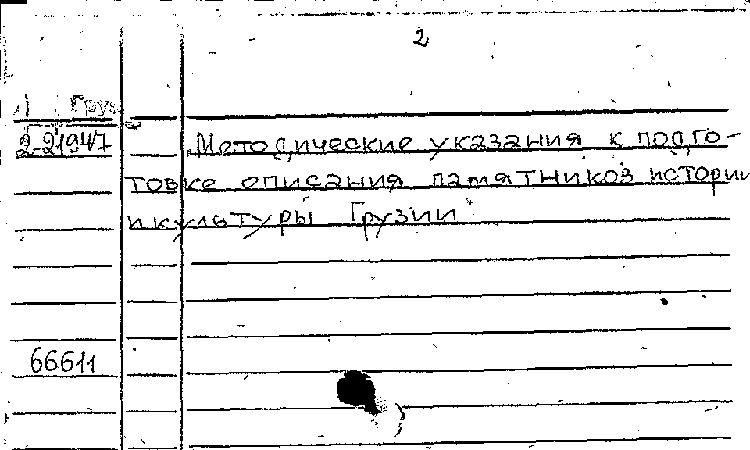 2
Груз
2-21947
Методические указания к подго-
товке описания памятников истории
и культуры Грузии
66611